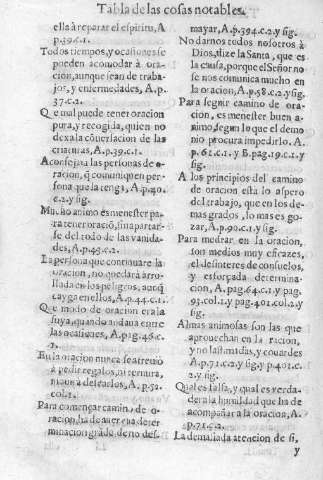 Tabla de las cosas notables.
ella à reparar el espiritu, A
p.39.c.1.
Todos tiempos, y ocasiones se
pueden acomodar à ora-
cion, aunque sean de traba-
jos, y enfermedades, A. p.
37.c.2.
Que mal puede tener oracion
pura, y recogida, quien no
dexa la cõversacion de las
criaturas, A.p.39.c.1.
Aconseja à las personas de o-
racion, q̃ comuniquen per-
sona que la tenga, A.p.40.
c.2.y sig.
Mucho animo es menester pa-
ra tener oraciõ, sin apartar-
se del todo de las vanida-
des, A.p.43.c.2.
La persona que continuare la
oracion, no quedarà arro-
llada en los peligros, aunq̃
cayga en ellos, A.p.44.c.1.
Que modo de oracion era la
suya, quando andaua entre
las ocasiones, A.pag.46.c.
2.
En la oracion nunca se atreuiò
à pedir regalos, ni ternura,
ni aun à desearlos, A.p.52.
col.1.
Para començar camino de o-
racion, ha de auer gra deter-
minacion grãde de no des-
mayar, A.p.394.c.2.y sig.
No darnos todos nosotros à
Dios, dize la Santa, que es
la causa, porque el Señor no
se nos comunica mucho en
la oracion, A.p.58.c.2.y sig.
Para seguir camino de ora-
cion, es menester buen a-
nimo, segun lo que el demo
nio procura impedirlo. A.
p.61.c.1. y B.pag.19.c.1.y
sig.
A los principios del camino
de oracion està lo aspero
del trabajo, que en los de-
mas grados, lo mas es go-
zar, A.p.90.c.1.y sig.
Para medrar en la oracion,
son medios muy eficazes,
el desinteres de consuelos,
y esforçada determina-
cion, A.pag.64.c.1.y pag.
93.col.1.y pag.401.col.2.y
sig.
Almas animosas son las que
aprouechan en la racion,
y no las timidas, y couardes
A.p.71.c.2.y sig.y p.401.c.
2.y sig.
Qual es falsa, y qual es verda-
dera la humildad que ha de
acompañar à la oracion, A.
p.71.c.2.y sig.
La demasiada atencion de si,
y